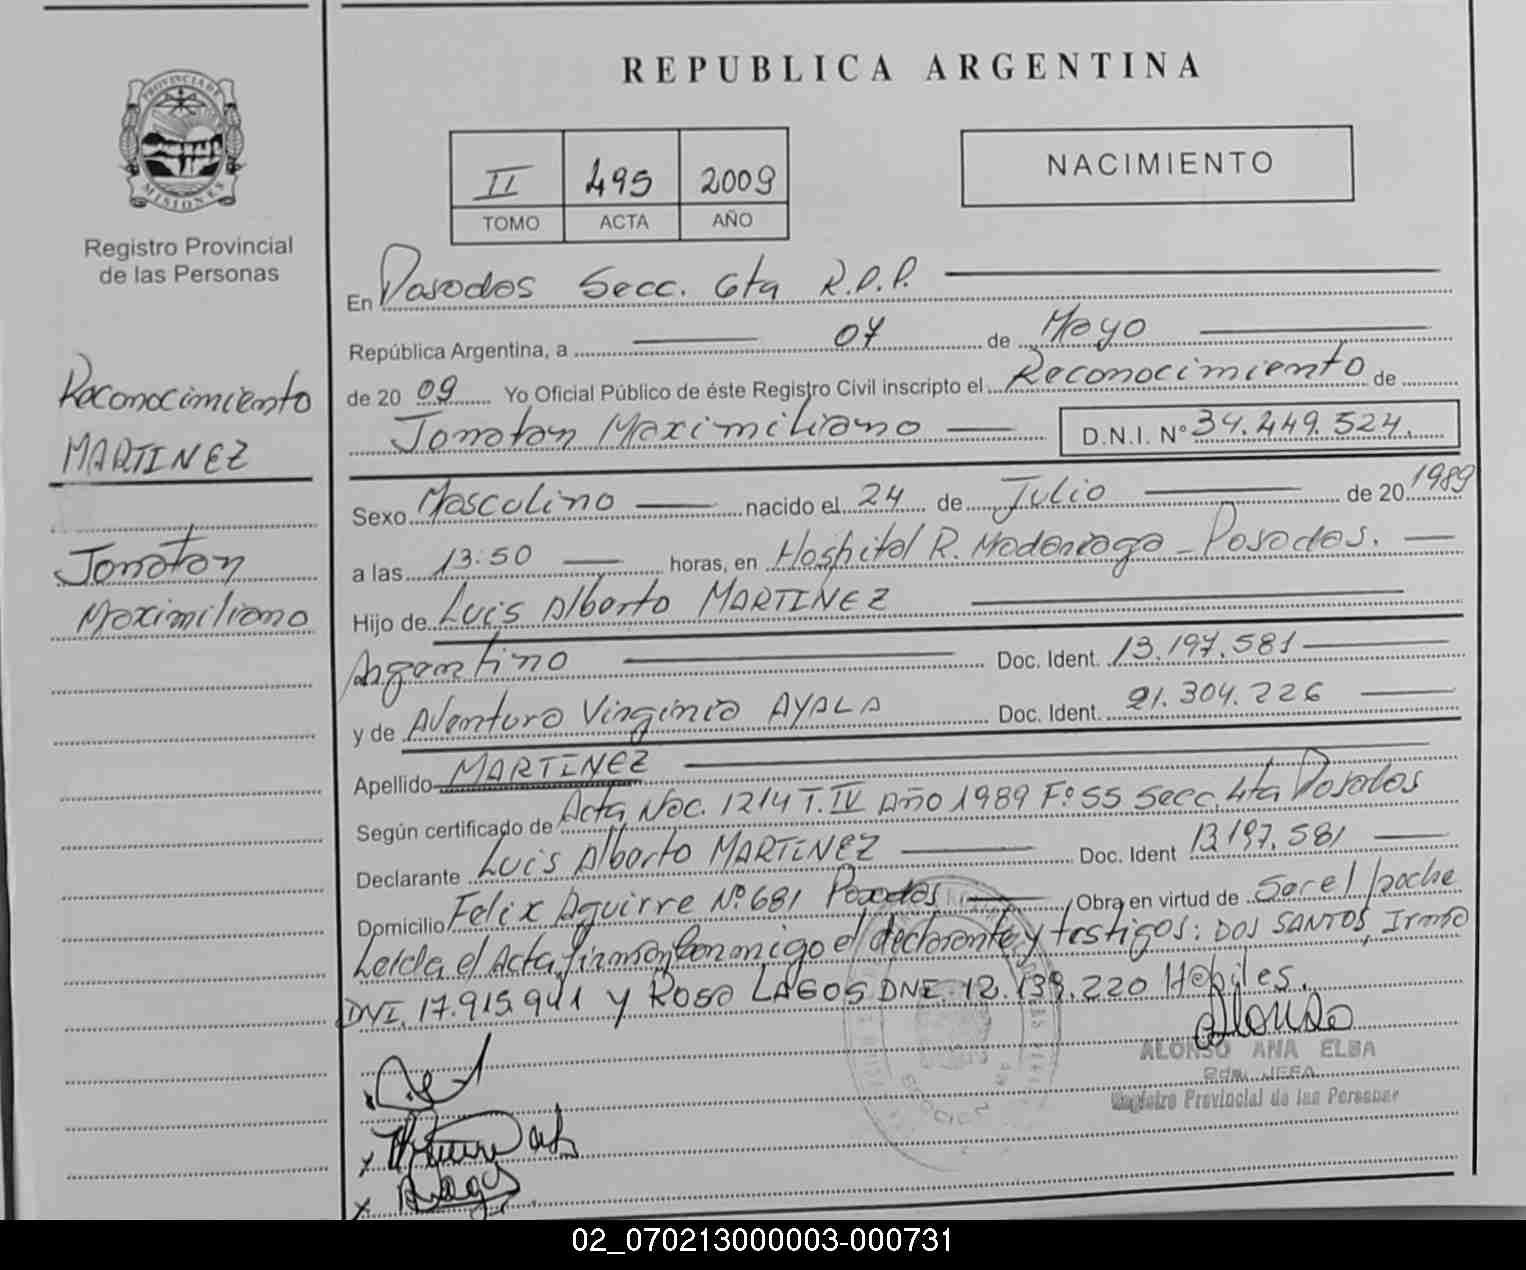 REPUBLICA ARGENTINA
PROVINCIA DE
MISIONES
Registro Provincial
de las Personas
II 495 2009
TOMO ACTA AÑO
NACIMIENTO
Reconocimiento
MARTINEZ
Jonatan
Maximiliano
En Posadas Secc. 6ta R.P.P.
República Argentina, a 07 de Mayo
de 20 09 Yo Oficial Público de éste Registro Civil inscripto el Reconocimiento de
Jonatan Maximiliano D.N.I. N° 34.249.524.
Sexo Masculino nacido el 24 de Julio de 20 1989
a las 13:50 horas, en Hospital R. Madariaga - Posadas.
Hijo de Luis Alberto MARTINEZ
Argentino Doc. Ident. 13.197.581
y de Aventura Virginia AYALA Doc. Ident. 21.304.226
Apellido MARTINEZ
Según certificado de Acta Nac. 1214 T. IV Año 1989 Fº 55 Secc. 4ta Posadas
Declarante Luis Alberto MARTINEZ Doc. Ident 13197.581
Domicilio Felix Aguirre Nº 681 Posadas Obra en virtud de
Leida el Acta, firman conmigo el declarante y testigos: DOS SANTOS, Irma
DNI. 17.915.941 y Rosa LAGOS DNI. 12.139.220 Habiles.
Alonso
ALONSO ANA ELBA
JEFA
Registro Provincial de las Personas
02_070213000003-000731